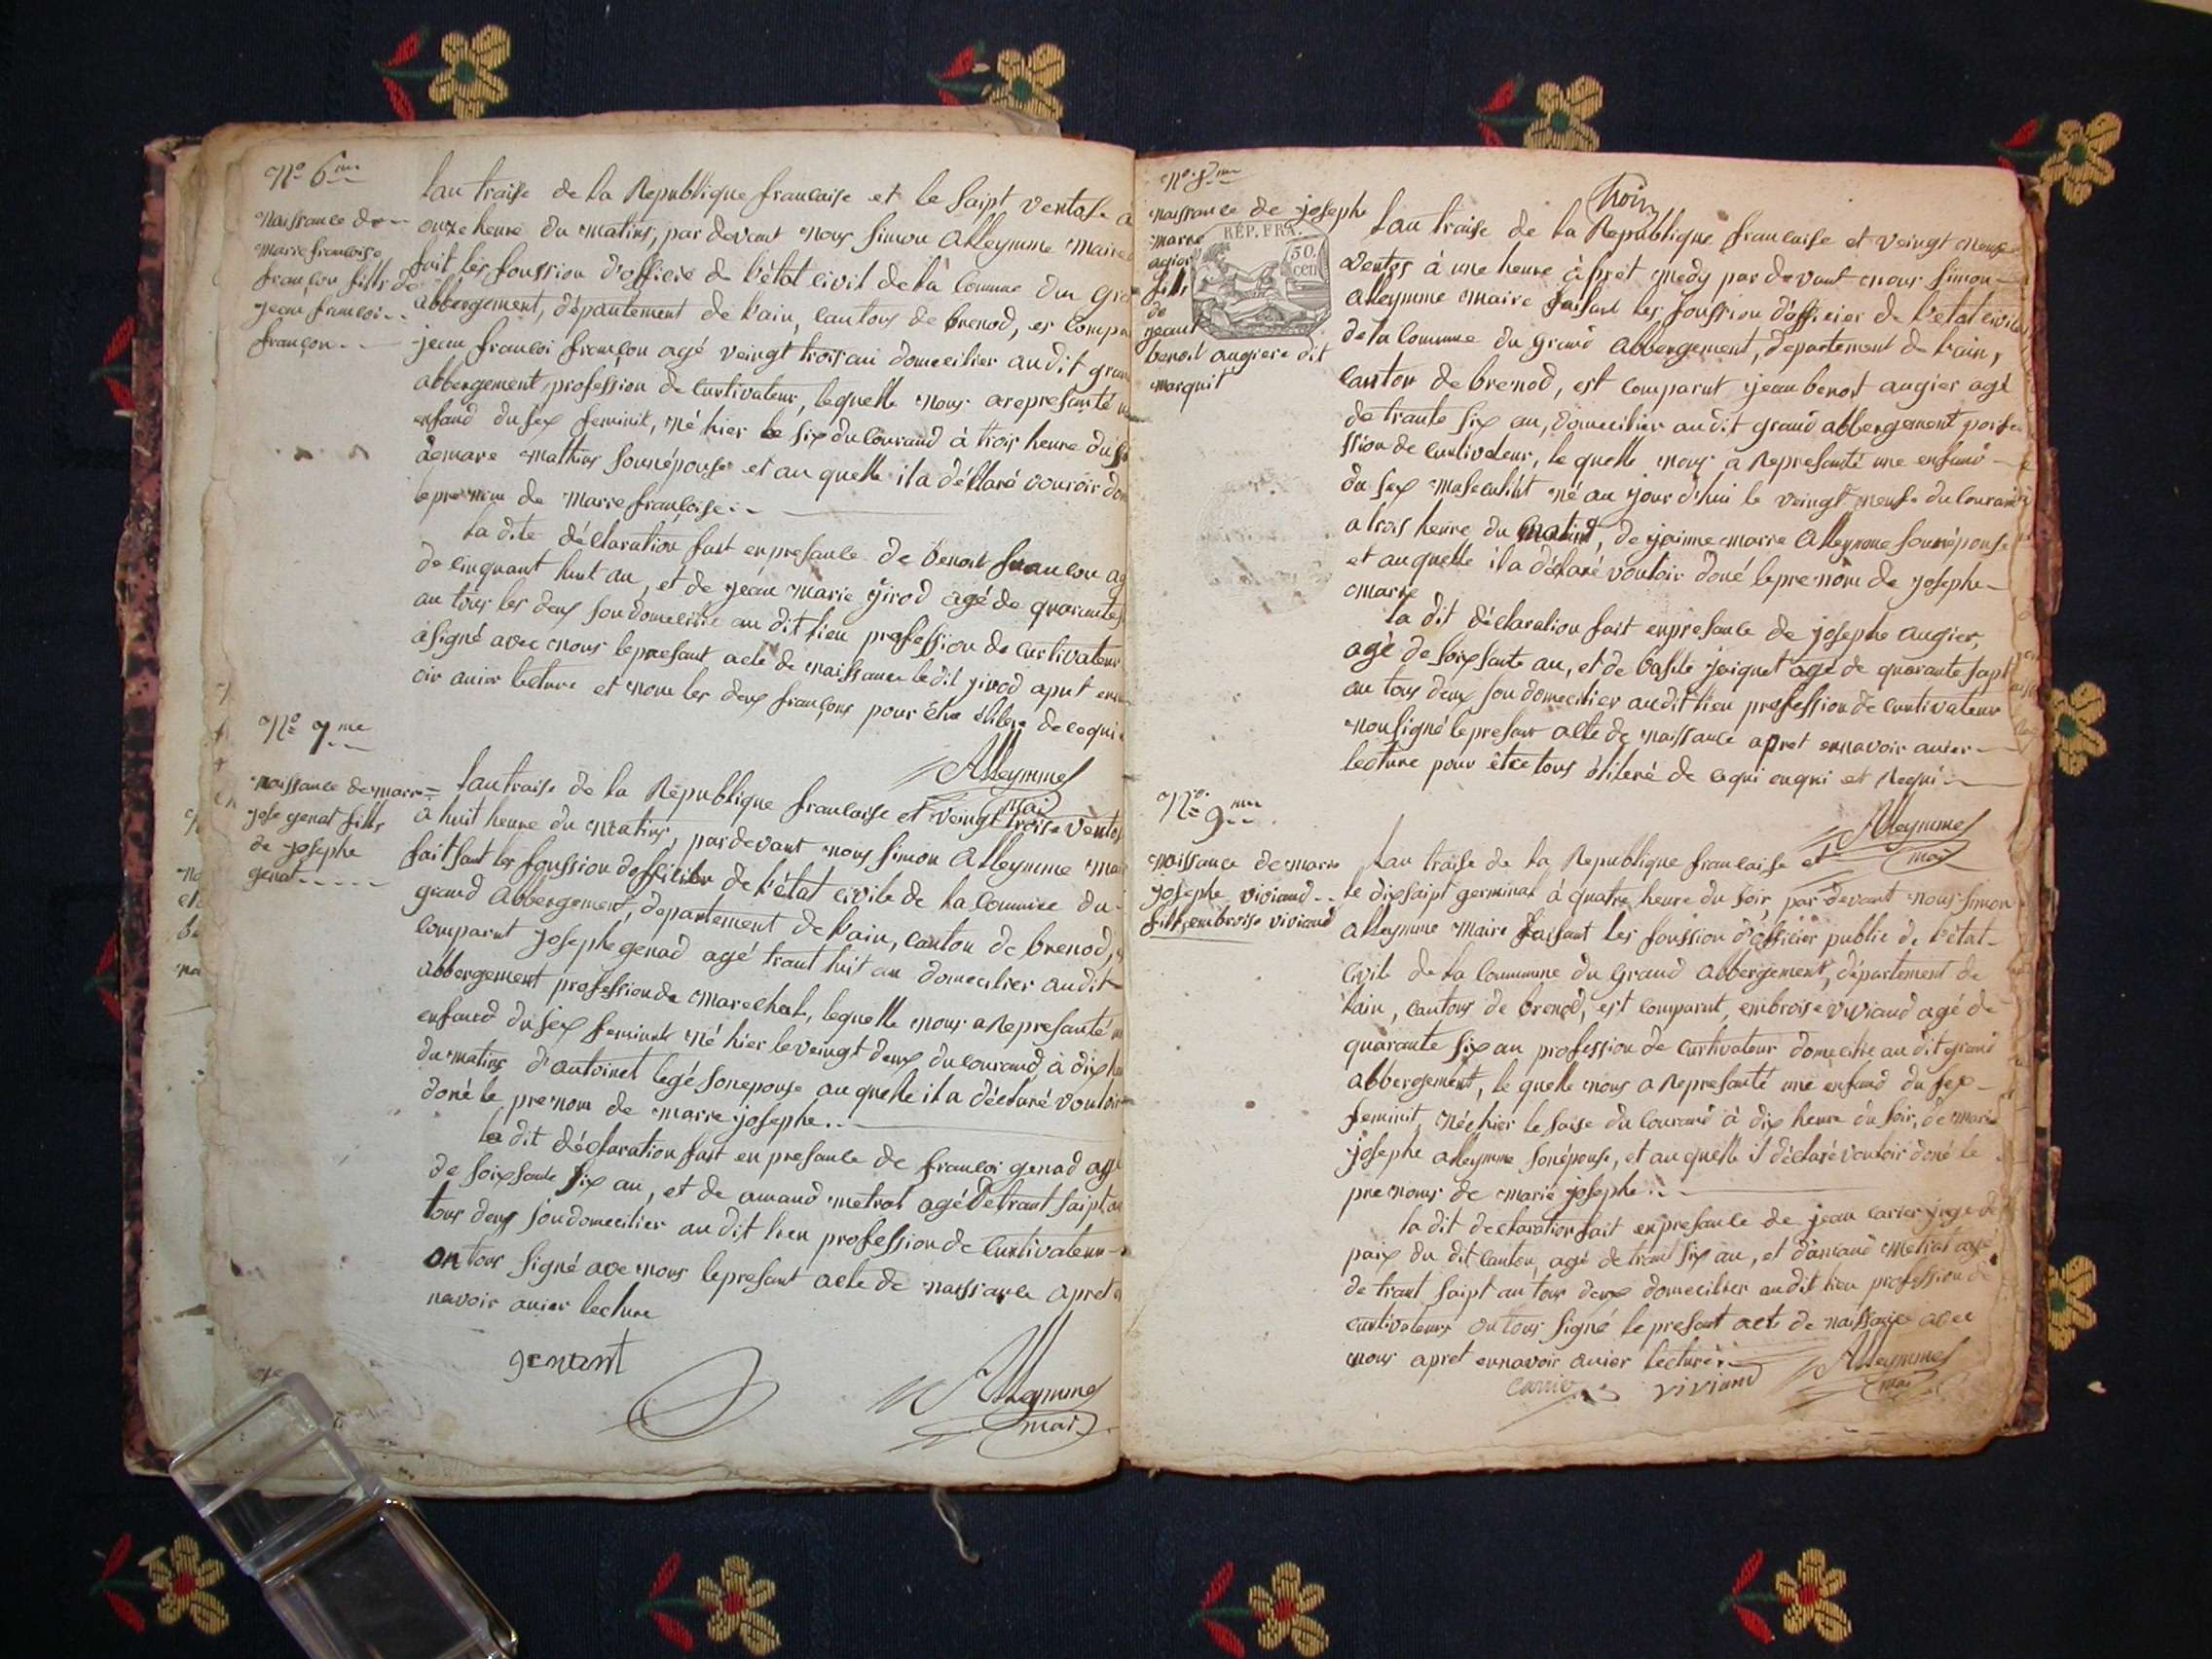 N° 6me
naissance de
marie francoise
françon fills de
jean francoi
françon
lan traise de la Republique francaise et le saipt ventose a
onze heure du matins, par devant nous simon Alleymme maire
fait les foussion d'officié de l'état civil de la commune du gra
abbergement, département de l'ain, cantons de brenod, es compar
jean francoi françon agé veingt trois an domecilier au dit grand
abbergement profession de curtivateur, lequelle nous a represanté u
enfand du sex feminit, né hier le six du courand à trois heure du s
de mare mathieu son népouse et au quelle il a déclaré vouroir don
le pre nom de marre françoise
la dite déclaration fait en presance de benoit francon ag
de cinquant huit an, et de jean marie jirod agé de quarante
an tous les deux son domecilie au dit lieu profession de curtivateur
a signé avec nous le presant acte de naissance le dit jirod apret en
oir anier lecture et nom les deux françons pour être élitere de ce qui
Alleymme
mai
N° 7me
naissance de marre
jose genat fills
de josephe
genat
lan traise de la Republique francaise et veingt troise ventos
à huit heure du matins, par devant nous simon Alleymme mair
fait sant les foussion d'officier de l'état civile de la commune du
grand Abbergement, departement de l'ain, canton de brenod, e
comparut josephe genad agé trant huit an domecilier au dit
abbergement profession de marechal, lequelle nous a represanté u
enfand du sex feminit né hier le veingt deux du courand à dix he
du matins d'antoinet legé son epouse au quelle il a décluré vouloir
doné le pre nom de marre josephe
la dit déclaration fait en presance de francoi genad agé
de soixsante six an, et de amand metrat agé de trant saipt an
tous deux son domecilier au dit lieu profession de curtivateur
on tous signé avec nous le presant acte de naissance apret e
navoir anier lecture
genant
Alleymme
mai
N° 8me
naissance de josephe
marre
agier
fills
de
jeant
benoit augiere dit
marquit
RÉP. FRA.
50
cen
trois
lan traise de la Republique francaise et veingt neuf
ventos à une heure à pret medy par devant nous simon
Alleymme maire faisant les foussion d'officier de l'etat civile
de la commune du grand Abbergement, departement de l'ain,
canton de brenod, est comparut jean benoit augier agé
de trante six an, domecilier au dit grand abbergement profe
ssion de curtivateur, le quelle nous a represanté une enfand
du sex masculint né au jour d'hui le veingt neuf du courand
a trois heure du matint, de jainne marre Alleymme sonnépouse
et au quelle il a déclaré vouloir doné le pre nom de josephe
marre
la dit déclaration fait en presance de josephe augier,
agé de soixsante an, et de basile joiquet agé de quarante sapt
an tous deux son domecilier au dit lieu profession de curtivateur
non signé le presant acte de naissance apret ennavoir anier
lecture pour être tous élitéré de ce qui en qui et Requi
Alleymme
mai
N° 9me
naissance de marre
josephe viviand
fills embroise viviand
lan traise de la Republique francaise et
le dix saipt germinal à quatre heure du soir, par devant nous simon
alleymme maire faisant les foussion d'officier public de l'état
civile de la commune du grand abbergement, département de
l'ain, cantons de brenod, est comparut, embroise viviand agé de
quarante six an profession de curtivateur domecilie au dit grand
abbergement, le quelle nous a represanté une enfand du sex
feminit, né hier le saise du courand à dix heure du soir, de marie
josephe alleymme sonépouse, et au quelle il déclaré vouloir doné le
pre noms de marie josephe
la dit declaration fait en presance de jean carier juge de
paix du dit canton agé de trant six an, et d'amand metrat agé
de trant saipt an tous deux domecilier au dit lieu profession de
curtivateurs on tous signé le presant acte de naissance avec
nous apret ennavoir anier lecture
carrie viviand Alleymme
mai